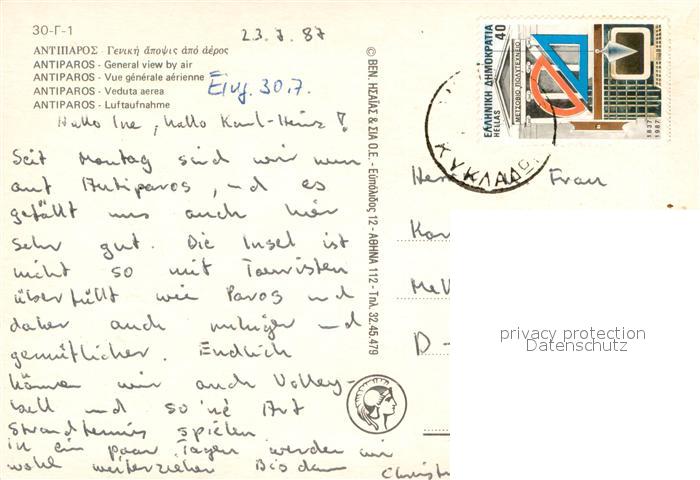 30-Γ-1
23.7.87
ΑΝΤΙΠΑΡΟΣ - Γενική ἄποψις ἀπό ἀέρος
ANTIPAROS - General view by air
ANTIPAROS - Vue générale aérienne
ANTIPAROS - Veduta aerea
ANTIPAROS - Luftaufnahme
Eing. 30.7.
Hallo Ine, hallo Karl-Heinz!
Seit Montag sind wir nun
auf Antiparos, und es
gefällt uns auch hier
sehr gut. Die Insel ist
nicht so mit Touristen
überfüllt wie Paros und
daher auch ruhiger und
gemütlicher. Endlich
können wir auch Volley-
ball und so 'ne Art
Strandtennis spielen
In ein paar Tagen werden wir
wohl weiterziehen Bis dann
Christ
© ΒΕΝ. ΗΣΑΪΑΣ & ΣΙΑ Ο.Ε. - Εὐπόλιδος 12 - ΑΘΗΝΑ 112 - Τηλ. 32.45.479
ΕΛΛΗΝΙΚΗ ΔΗΜΟΚΡΑΤΙΑ 40
HELLAS
ΜΕΤΣΟΒΙΟ ΠΟΛΥΤΕΧΝΕΙΟ
1837 1987
ΚΥΚΛΑΔΩΝ
Frau
D-
privacy protection
Datenschutz